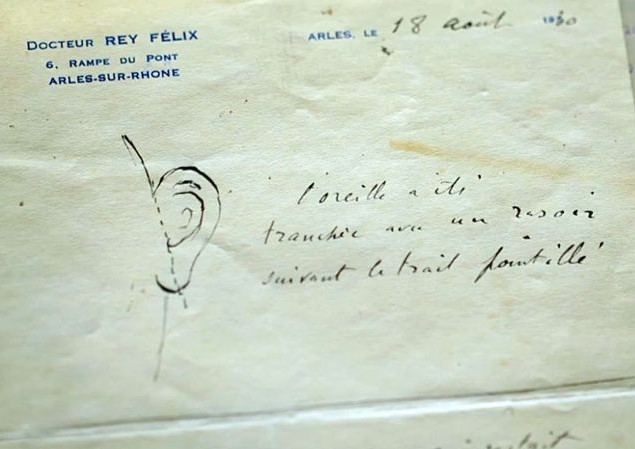 DOCTEUR REY FÉLIX
6, RAMPE DU PONT
ARLES-SUR-RHONE
ARLES, LE 18 août 1930
l'oreille a été
tranchée avec un rasoir
suivant le trait pointillé